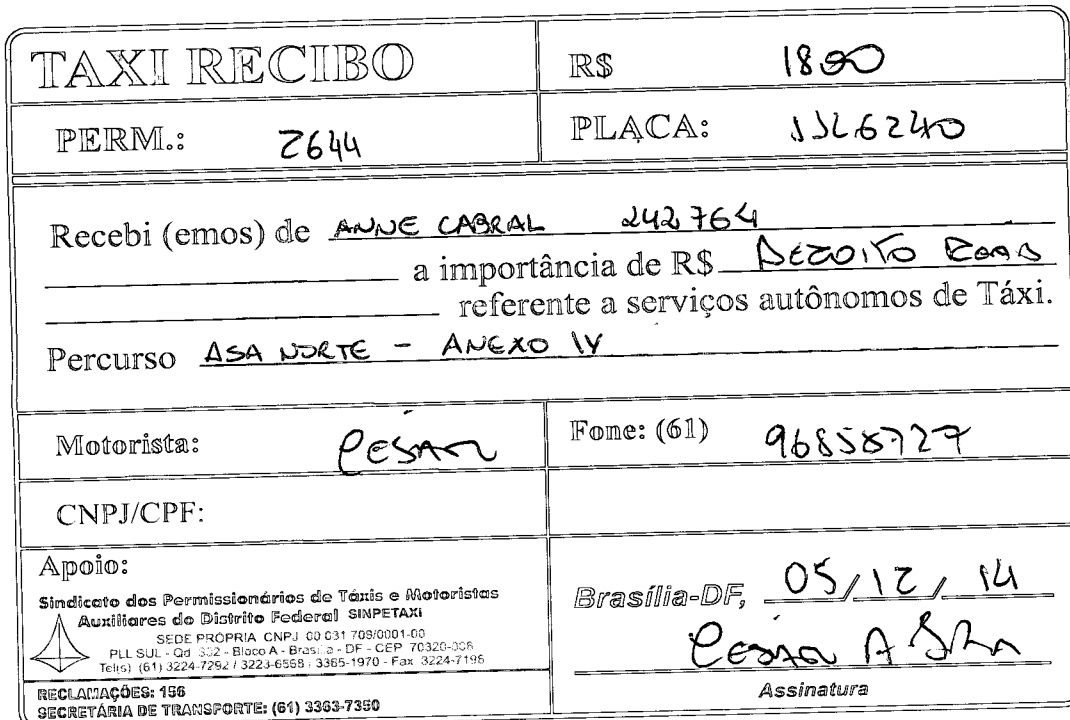 TAXI RECIBO
R$ 1800
PERM.: 2644
PLACA: JJL6240
Recebi (emos) de ANNE CABRAL 242764
a importância de R$ DEZOITO REAIS
referente a serviços autônomos de Táxi.
Percurso ASA NORTE - ANEXO IV
Motorista: CESAR
Fone: (61) 96858727
CNPJ/CPF:
Apoio:
Sindicato dos Permissionários de Táxis e Motoristas
Auxiliares do Distrito Federal SINPETAXI
SEDE PRÓPRIA CNPJ 00 031 709/0001-00
PLL SUL - Qd 302 - Bloco A - Brasília - DF - CEP 70320-
Tel(s) (61) 3224-7292 / 3223-6568 / 3365-1970 - Fax 3224-7196
RECLAMAÇÕES: 156
SECRETÁRIA DE TRANSPORTE: (61) 3363-7350
Brasília-DF, 05/12/14
Cesar A
Assinatura